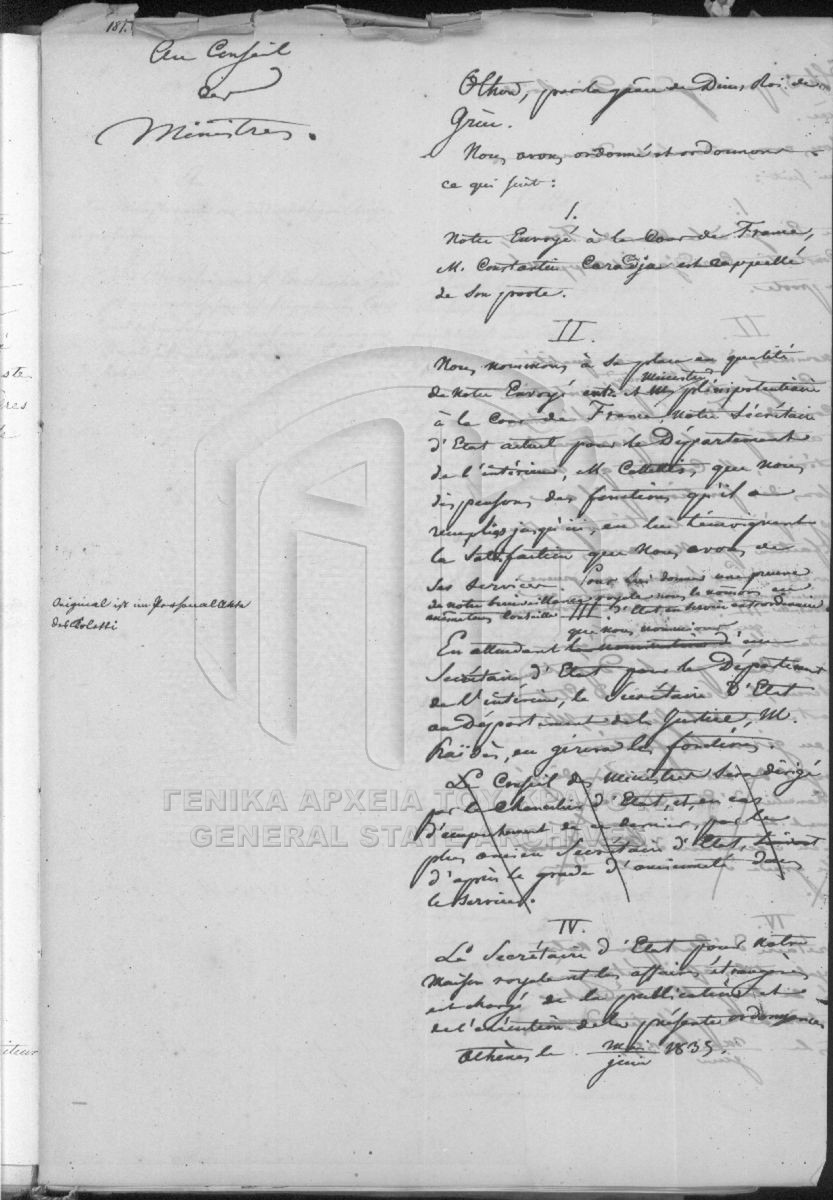 181.
Au Conseil
des
Ministres.
Othon, par la grâce de Dieu, Roi de
Grèce.
Nous avons ordonné et ordonnons
ce qui suit:
I.
Notre Envoyé à la Cour de France,
M. Constantin Caradja est rappellé
de son poste.
II.
Nous nommons à sa place en qualité
de notre Envoyé extr. et Ministre plénipotentiaire
à la Cour de France, notre Sécrétaire
d'Etat actuel pour le Département
de l'intérieur, M. Colettis, que Nous
dispensons des fonctions qu'il a
remplies jusqu'ici, en lui témoignant
la Satisfaction que Nous avons de
Ses services. Pour lui donner une preuve
de notre bienveillance royale nous le nommons en
même tems Conseiller d'Etat en service extraordinaire
III
que nous nommions
En attendant la nomination d'un
Secrétaire d'Etat pour le Département
de l'intérieur, le Secrétaire d'Etat
au Département de la Justice, M.
Praïdès, en gérera les fonctions.
Le Conseil des Ministres sera dirigé
par le Chancelier d'Etat, et, en cas
d'empêchement de ce dernier, par le
plus ancien Secrétaire d'Etat,
d'après le grade d'ancienneté dans
le service.
IV.
Le Secrétaire d'Etat pour notre
Maison royale et les affaires étrangères
est chargé de la publication et
de l'exécution de la présente ordonnance
Athènes le mai/juin 1835.
Original ist im Personal Akte
des Coletti
ΓΕΝΙΚΑ ΑΡΧΕΙΑ ΤΟΥ ΚΡΑΤΟΥΣ
GENERAL STATE ARCHIVES